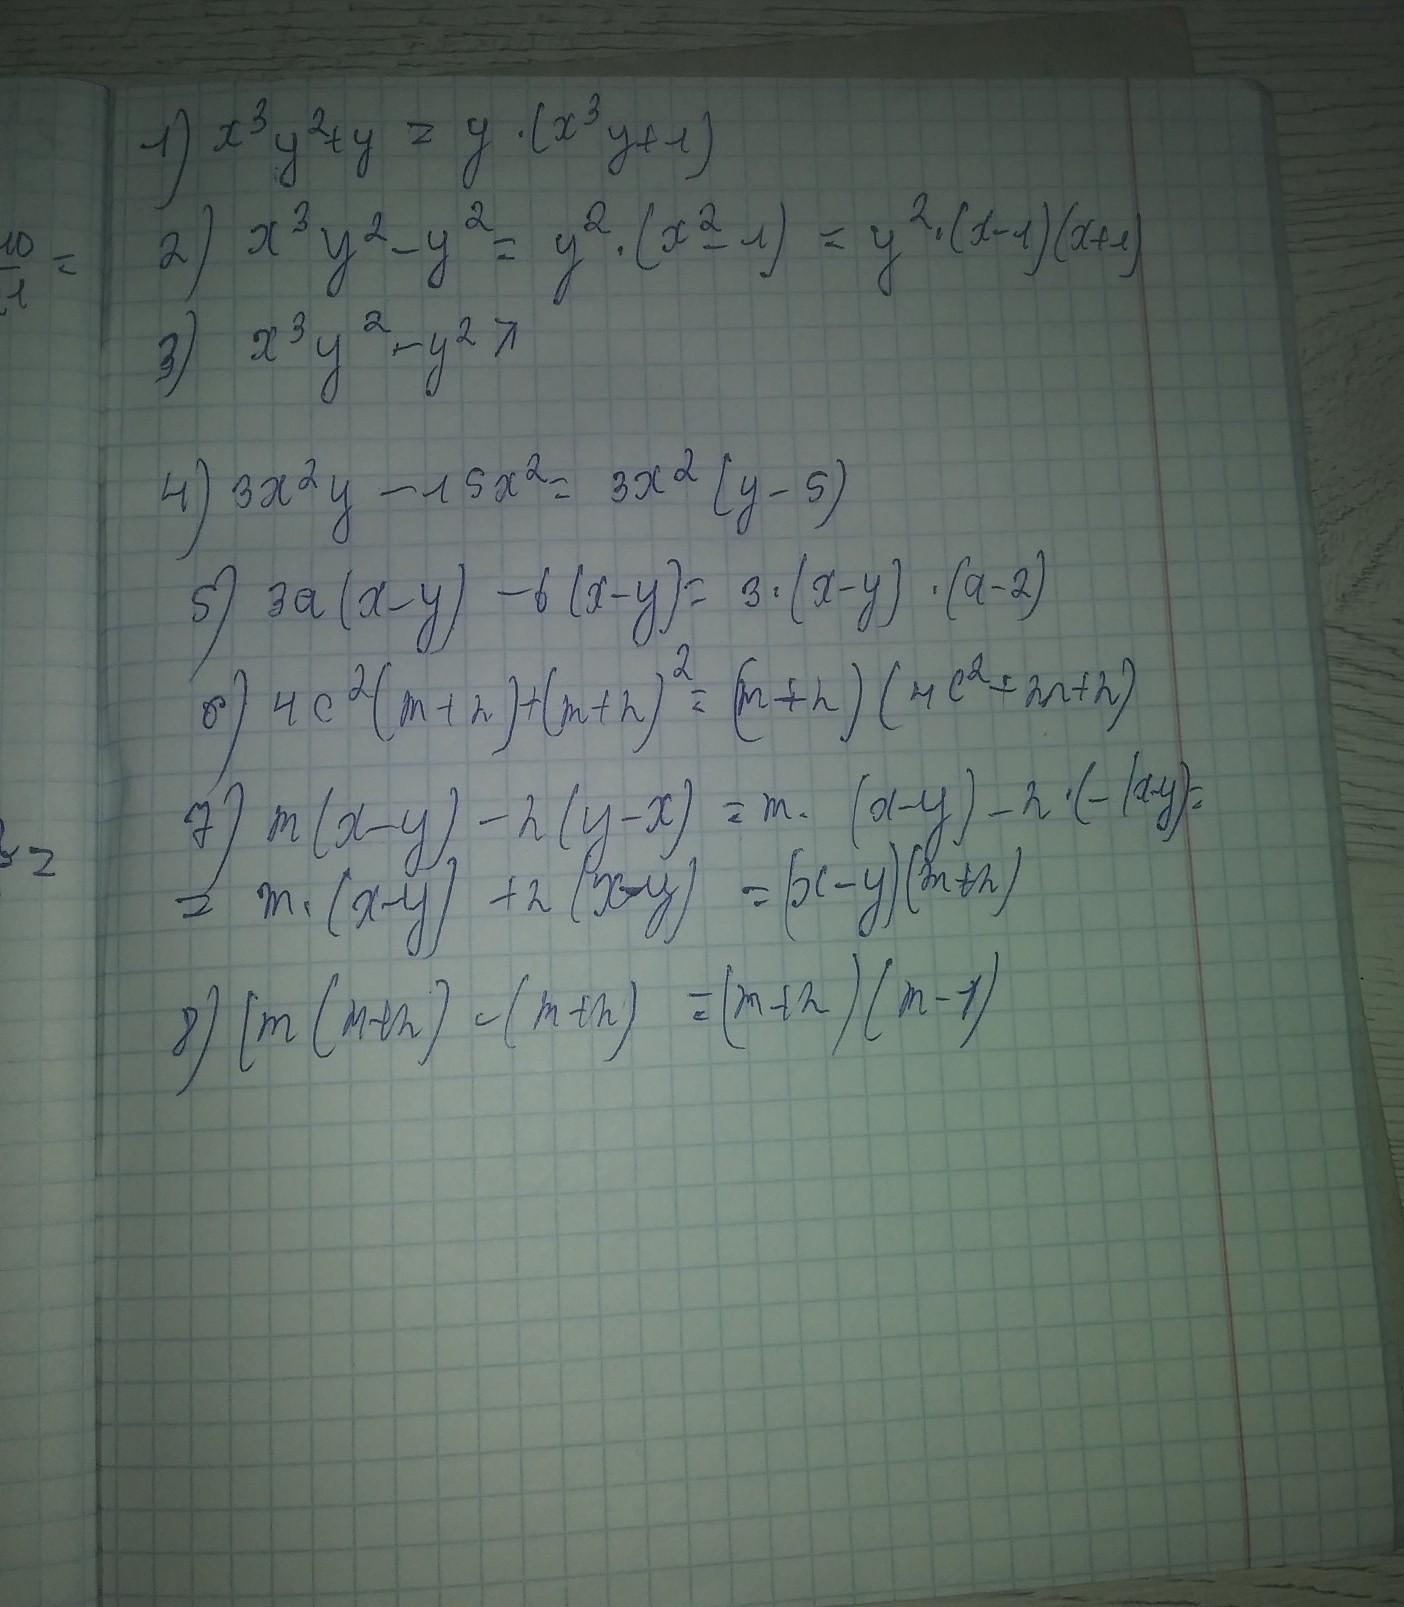 1) x³y²+y = y·(x³y+1)
10/1 =
2) x³y²-y² = y²·(x²-1) = y²·(x-1)(x+1)
3) x³y²-y²
4) 3x²y - 15x² = 3x²(y-5)
5) 3a(x-y) - 6(x-y) = 3·(x-y)·(a-2)
6) 4c²(m+n)+(m+n)² = (m+n)(4c²+m+n)
7) m(x-y) - n(y-x) = m·(x-y) - n·(-(x-y) =
= m·(x-y) + n(x-y) = (x-y)(m+n)
8) [m(m+n) - (m+n) = (m+n)(m-1)